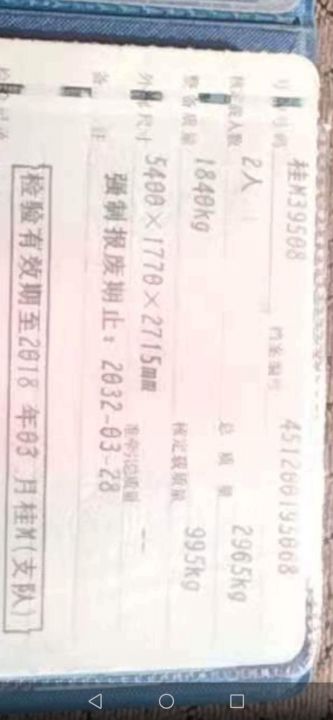 号牌号码 桂M39508 档案编号 451200195068
核定载人数 2人 总质量 2965kg
整备质量 1840kg 核定载质量 995kg
外廓尺寸 5400×1770×2715mm 准牵引总质量 --
备注 强制报废期止：2032-03-28
检验有效期至2018年03月桂M(支队)